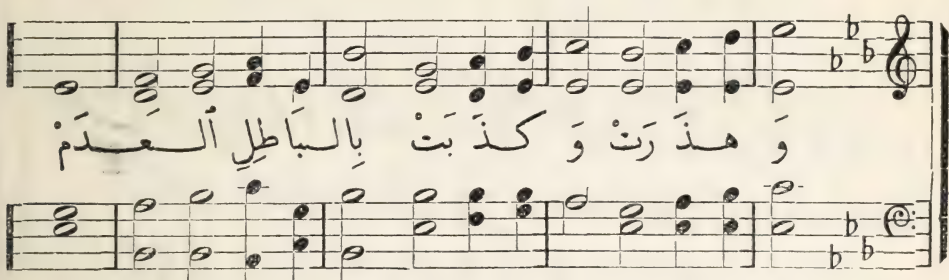 وَ هذَرَتْ وَ كذَبَتْ بِالبَاطِلِ ٱلعَدَمْ